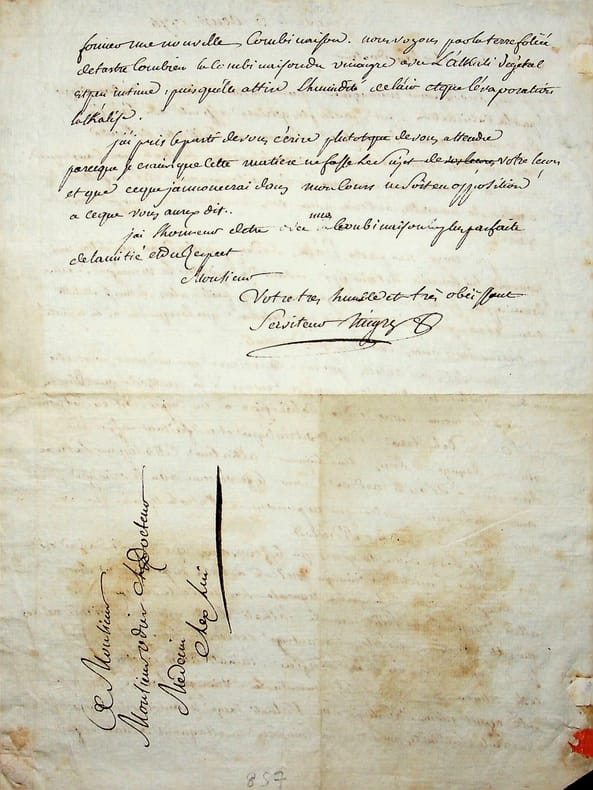 former une nouvelle Combinaison. nous voyons par la terre foliée
de tartre Combien la Combinaison du vinaigre avec L'alkali végétal
est peu intime, puisqu'elle attire l'humidité de l'air et que l'évaporation
l'alkalise.
j'ai pris le parti de vous écrire plutot que de vous attendre
parceque je crains que cette matiere ne fasse le Sujet de votre lecon
et que ce que j'annoncerai dans mon Cours ne Soit en opposition
a ce que vous aurez dit..
j'ai l'honneur d'etre avec la Combinaison la plus parfaite
de lamitié et du Respect
Monsieur
Votre tres humble et tres obéissant
Serviteur Tingry
A Monsieur
Monsieur odier Docteur
Medecin
chez lui
857